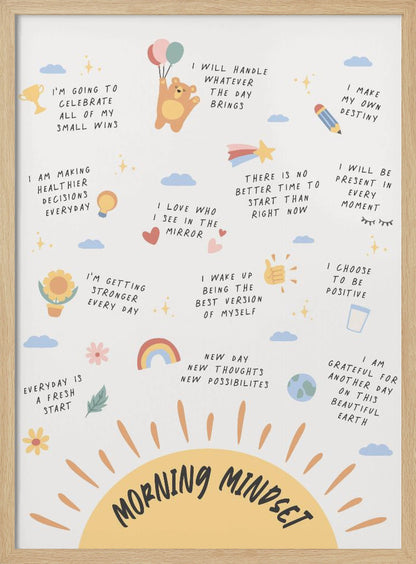 I'M GOING TO
CELEBRATE
ALL OF MY
SMALL WINS
I WILL HANDLE
WHATEVER
THE DAY
BRINGS
I MAKE
MY OWN
DESTINY
I AM MAKING
HEALTHIER
DECISIONS
EVERYDAY
I LOVE WHO
I SEE IN THE
MIRROR
THERE IS NO
BETTER TIME TO
START THAN
RIGHT NOW
I WILL BE
PRESENT IN
EVERY
MOMENT
I'M GETTING
STRONGER
EVERY DAY
I WAKE UP
BEING THE
BEST VERSION
OF MYSELF
I CHOOSE
TO BE
POSITIVE
EVERYDAY IS
A FRESH
START
NEW DAY
NEW THOUGHTS
NEW POSSIBILITES
I AM
GRATEFUL FOR
ANOTHER DAY
ON THIS
BEAUTIFUL
EARTH
MORNING MINDSET